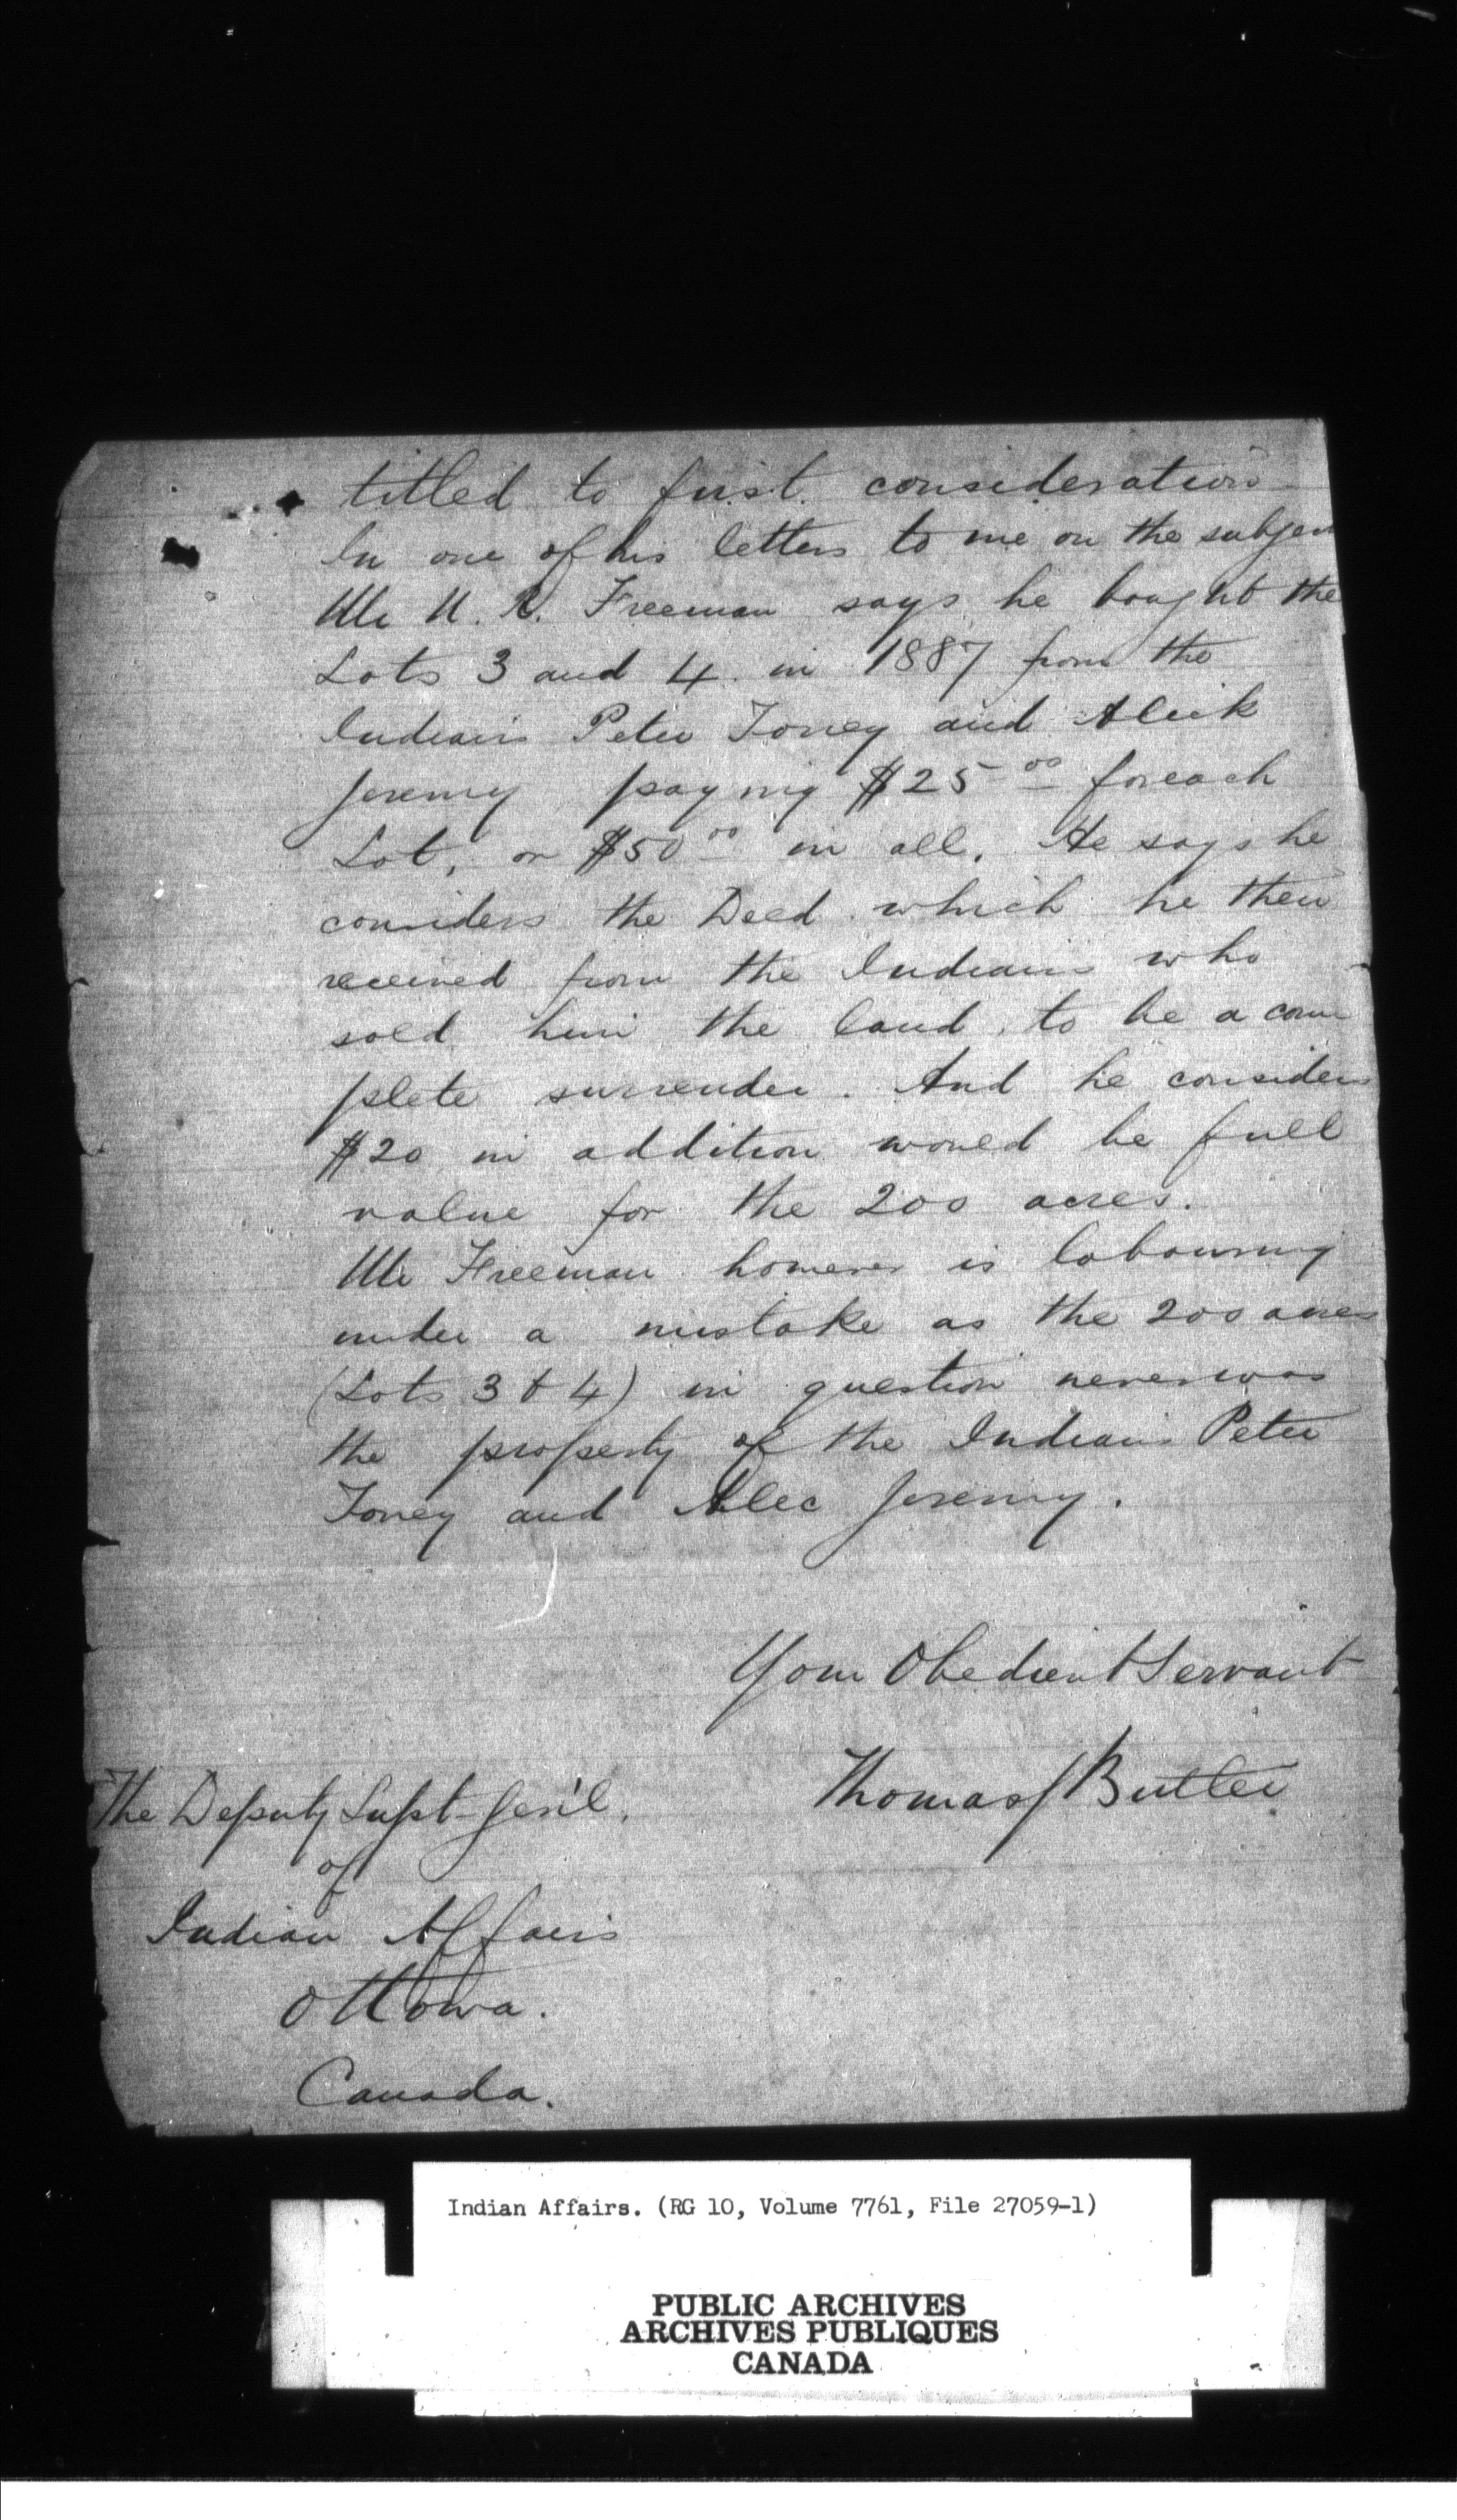 titled to first consideration
In one of his letters to me on the subject
Mr N. R. Freeman says he bought the
Lots 3 and 4 in 1887 from the
Indians Peter Toney and Aleik
Jeremy paying $25 00 for each
Lot, or $50 00 in all. He says he
considers the Deed which he then
received from the Indians who
sold him the land, to be a com
plete surrender. And he considers
$20 in addition would be full
value for the 200 acres.
Mr Freeman however is labouring
under a mistake as the 200 acres
(Lots 3 & 4) in question never was
the property of the Indians Peter
Toney and Alec Jeremy.
Your Obedient Servant
Thomas J Butler
The Deputy Supt-Gen'l.
of
Indian Affairs
Ottowa.
Canada.
Indian Affairs. (RG 10, Volume 7761, File 27059-1)
PUBLIC ARCHIVES
ARCHIVES PUBLIQUES
CANADA